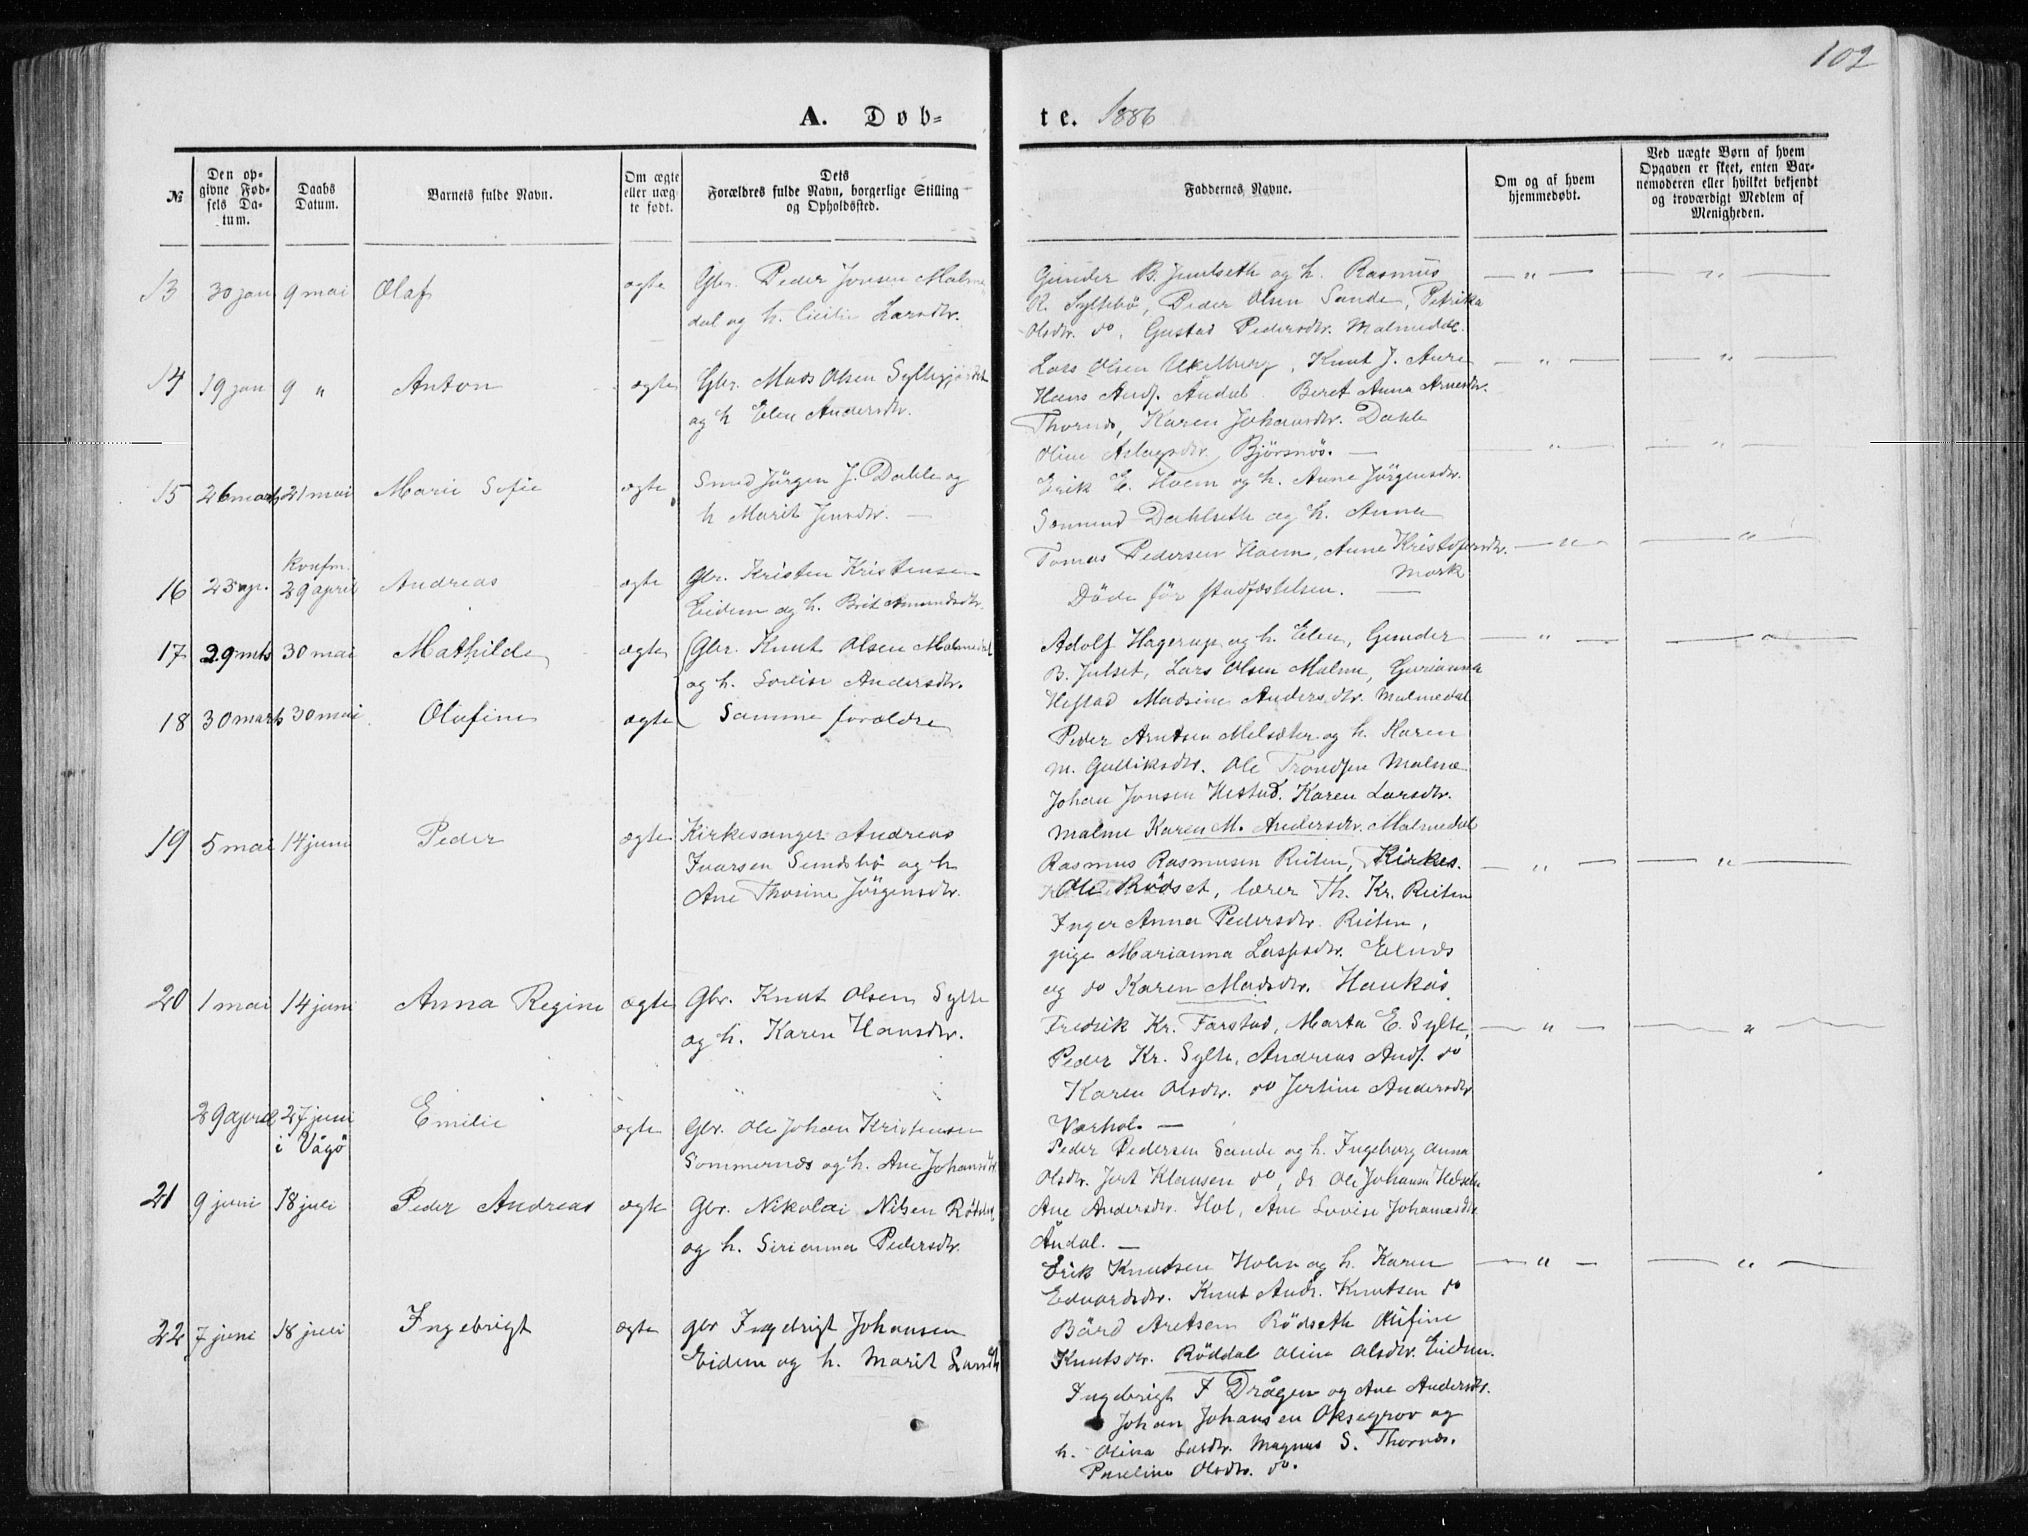 102
A. Døb-
te. 1886
№
Den op-
givne Fød-
sels Da-
tum.
Daabs
Datum.
Barnets fulde Navn.
Om ægte
eller uæg-
te født.
Dets
Forældres fulde Navn, borgerlige Stilling
og Opholdssted.
Faddernes Navne.
Om og af hvem
hjemmedøbt.
Ved uægte Børn af hvem
Opgaven er skeet, enten Bar-
nemoderen eller hvilket bekjendt
og troværdigt Medlem af
Menigheden.
13 30 jan 9 mai Olaf ægte Gbr. Peder Jonsen Malme
dal og h. Cicilie Larsdtr.
Gunder B. Julseth og h. Rasmus
R. Syltebø, Peder Olsen Sande, Petrika
Olsdtr. do, Gustad Pedersdtr. Malmedal
14 19 jan 9 " Anton ægte Gbr. Mads Olsen Syltegjerdet
og h Elen Andersdtr.
Lars Olsen Ukelberg, Knut J. Aure
Hans Ands. Andal. Beret Anna Arnesdtr.
Thornes, Karen Johansdtr. Dahle
Oline Aslagsdtr. Bjørsnøs. —
15 26 marts 21 mai Marie Sofie ægte Smed Jörgen J. Dahle og
h Marit Jensdtr. —
Erik E. Hoem og h. Anne Jörgensdtr.
Samund Dahlseth og h. Anna
Tomas Pedersen Hoem, Anne Kristofersdtr.
Mork
16 23 ap. Konfm. 29 april Andreas ægte Gbr. Kristen Kristensen
Eidem og h. Brit Amundsdtr.
Döde för stadfæstelsen. —
17 29 mts 30 mai Mathilde ægte Gbr. Knut Olsen Malmedal
og h. Lovise Andersdtr.
Adolf Hagerup og h. Elen, Gunder
B. Julset, Lars Olsen Malme, Gurianna
Hestad Madsine Andersdtr. Malmedal
18 30 marts 30 mai Olufine ægte Samme forældre
Peder Arntsen Melsæter og h. Karen
M. Gulliksdtr. Ole Trondsen Malme
Johan Jonsen Hestad. Karen Larsdtr.
Malme Karen M. Andersdtr. Malmedal
19 5 mai 14 juni Peder ægte Kirkesanger Andreas
Ivarsen Sundsbö og h
Ane Thosine Jörgensdtr.
Rasmus Rasmusen Reiten, Kirkes.
Ole Rödset, lærer Th. Kr. Reiten
Inger Anna Pedersdtr. Reiten,
pige Marianna Lassesdtr. Eidnes
og do Karen Madsdtr. Haukås
20 1 mai 14 juni Anna Regine ægte Gbr. Knut Olsen Sylte
og h. Karen Hansdtr.
Fredrik Kr. Farstad, Marta E. Sylte,
Peder Kr. Sylte, Andreas Ands. do
Karen Olsdtr. do Jertine Andersdtr
Varhol. —
29 april 27 juni i Vågö Emilie ægte Gbr. Ole Johan Kristensen
Sommernes og h. Ane Johansdtr.
Peder Pedersen Sande og h. Ingeborg Anna
Olsdtr. Jert Klausen do, Ole Johansen
Ane Andersdtr. Hol, Ane Lovise Johannesdtr
Åndal. —
21 9 juni 18 juli Peder Andreas ægte Gbr. Nikolai Nilsen Röddal
og h. Serianna Pedersdtr.
Erik Knutsen Holen og h. Karen
Edvardsdtr. Knut Andr. Knutsen do
Bård Aretsen Rödseth Olifine
Knutsdtr. Röddal Olina Olsdtr. Eidem.
22 7 juni 18 juli Ingebrigt ægte gbr Ingebrigt Johansen
Eidem og h. Marit Larsdtr
Ingebrigt I Drågen og Ane Andersdtr.
Johan Johansen Oksegrov og
h. Olina Larsdtr. Magnus S. Thornes.
Paseline Olsdtr. do.